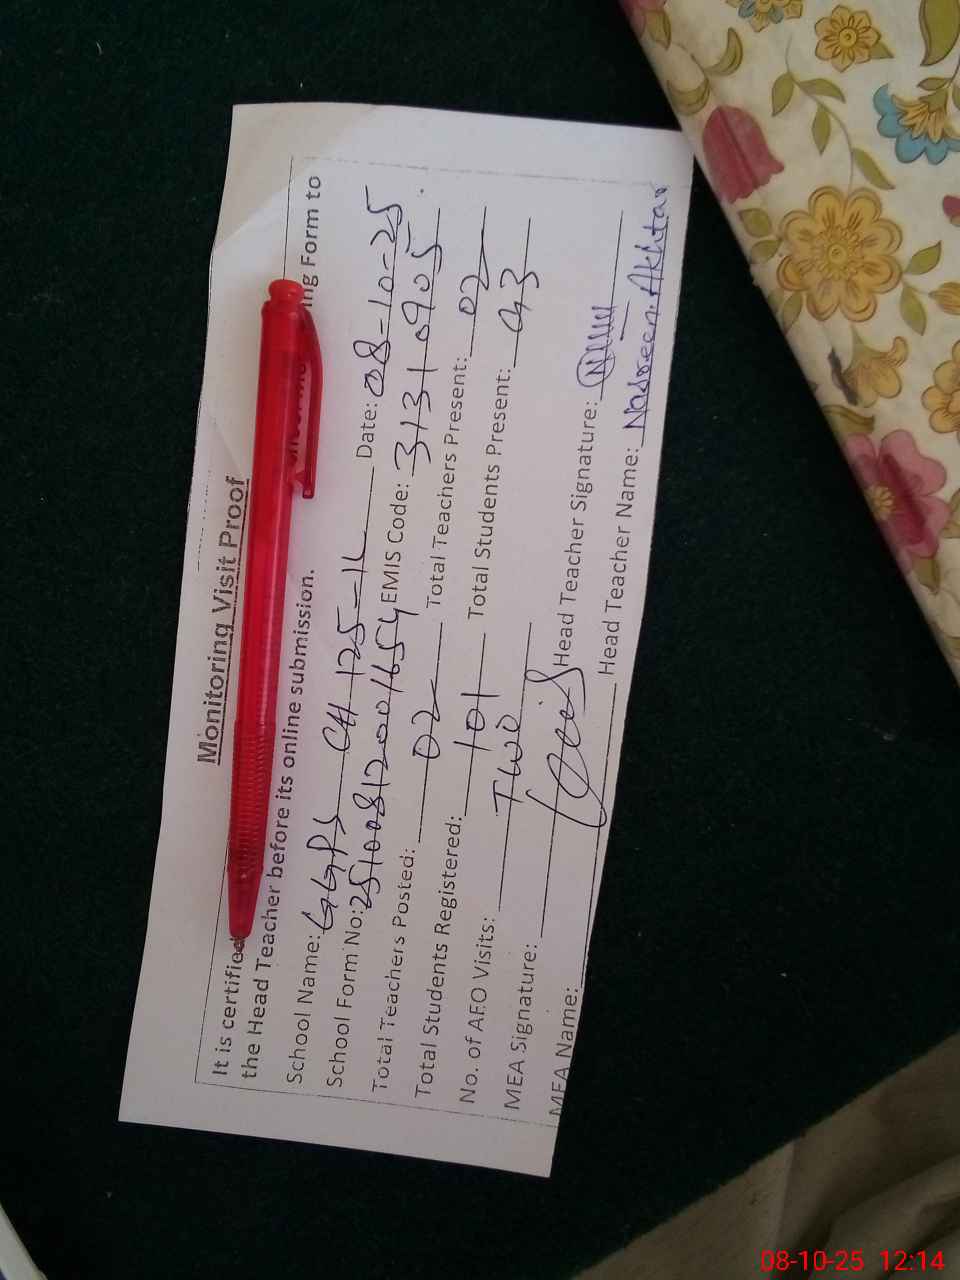 Monitoring Visit Proof
It is certified ing Form to
the Head Teacher before its online submission.
School Name: GGPS CH 125-1L Date: 08-10-25
School Form No: 25100812001654 EMIS Code: 31310905
Total Teachers Posted: 02 Total Teachers Present: 02
Total Students Registered: 101 Total Students Present: 93
No. of AEO Visits: Two
MEA Signature: Head Teacher Signature:
MEA Name: Head Teacher Name: Nasreen Akhtar
08-10-25 12:14